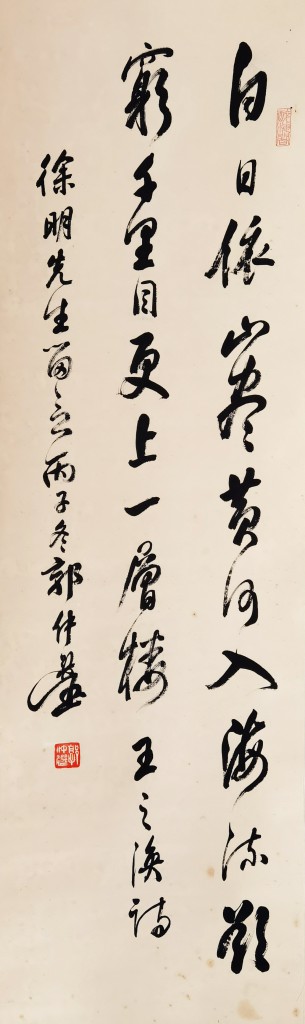 白日依山盡黄河入海流欲
窮千里目更上一層楼 王之涣詩
徐明先生留念 丙子冬郭仲選